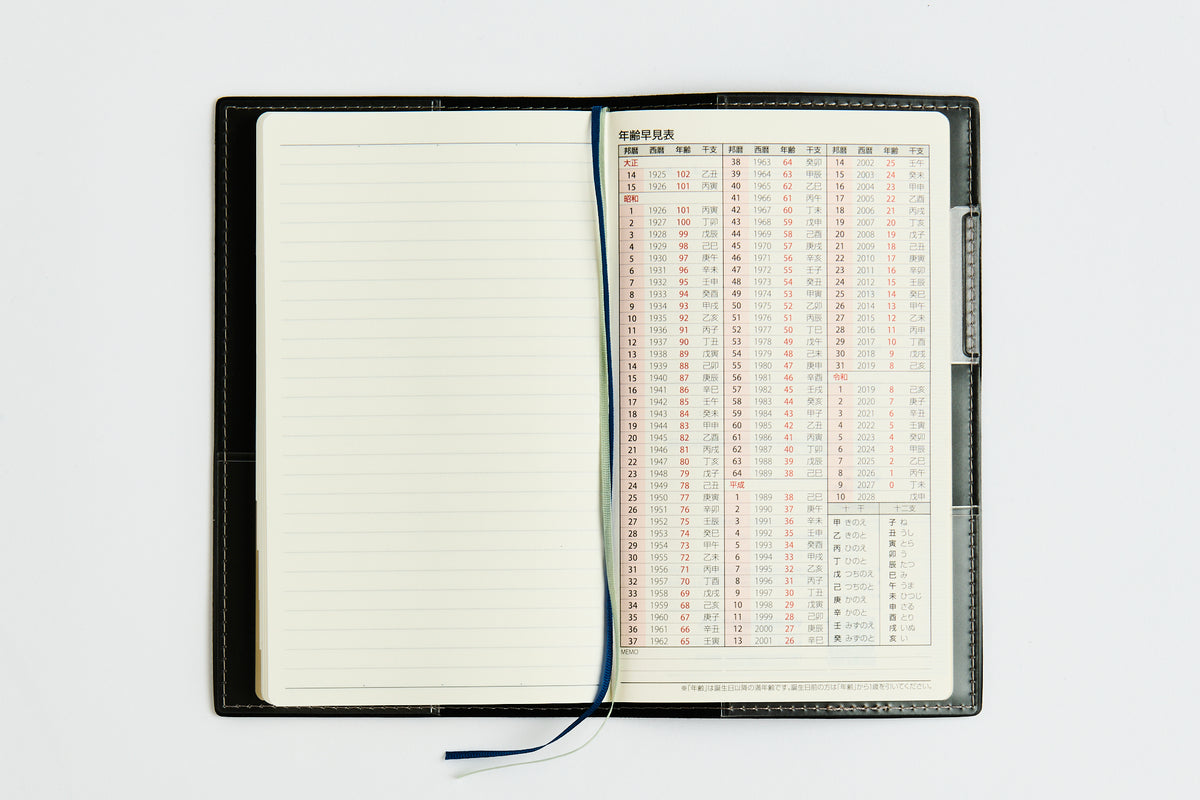 年齢早見表
邦暦 西暦 年齢 干支
大正
14 1925 102 乙丑
15 1926 101 丙寅
昭和
1 1926 101 丙寅
2 1927 100 丁卯
3 1928 99 戊辰
4 1929 98 己巳
5 1930 97 庚午
6 1931 96 辛未
7 1932 95 壬申
8 1933 94 癸酉
9 1934 93 甲戌
10 1935 92 乙亥
11 1936 91 丙子
12 1937 90 丁丑
13 1938 89 戊寅
14 1939 88 己卯
15 1940 87 庚辰
16 1941 86 辛巳
17 1942 85 壬午
18 1943 84 癸未
19 1944 83 甲申
20 1945 82 乙酉
21 1946 81 丙戌
22 1947 80 丁亥
23 1948 79 戊子
24 1949 78 己丑
25 1950 77 庚寅
26 1951 76 辛卯
27 1952 75 壬辰
28 1953 74 癸巳
29 1954 73 甲午
30 1955 72 乙未
31 1956 71 丙申
32 1957 70 丁酉
33 1958 69 戊戌
34 1959 68 己亥
35 1960 67 庚子
36 1961 66 辛丑
37 1962 65 壬寅
邦暦 西暦 年齢 干支
38 1963 64 癸卯
39 1964 63 甲辰
40 1965 62 乙巳
41 1966 61 丙午
42 1967 60 丁未
43 1968 59 戊申
44 1969 58 己酉
45 1970 57 庚戌
46 1971 56 辛亥
47 1972 55 壬子
48 1973 54 癸丑
49 1974 53 甲寅
50 1975 52 乙卯
51 1976 51 丙辰
52 1977 50 丁巳
53 1978 49 戊午
54 1979 48 己未
55 1980 47 庚申
56 1981 46 辛酉
57 1982 45 壬戌
58 1983 44 癸亥
59 1984 43 甲子
60 1985 42 乙丑
61 1986 41 丙寅
62 1987 40 丁卯
63 1988 39 戊辰
64 1989 38 己巳
平成
1 1989 38 己巳
2 1990 37 庚午
3 1991 36 辛未
4 1992 35 壬申
5 1993 34 癸酉
6 1994 33 甲戌
7 1995 32 乙亥
8 1996 31 丙子
9 1997 30 丁丑
10 1998 29 戊寅
11 1999 28 己卯
12 2000 27 庚辰
13 2001 26 辛巳
邦暦 西暦 年齢 干支
14 2002 25 壬午
15 2003 24 癸未
16 2004 23 甲申
17 2005 22 乙酉
18 2006 21 丙戌
19 2007 20 丁亥
20 2008 19 戊子
21 2009 18 己丑
22 2010 17 庚寅
23 2011 16 辛卯
24 2012 15 壬辰
25 2013 14 癸巳
26 2014 13 甲午
27 2015 12 乙未
28 2016 11 丙申
29 2017 10 丁酉
30 2018 9 戊戌
31 2019 8 己亥
令和
1 2019 8 己亥
2 2020 7 庚子
3 2021 6 辛丑
4 2022 5 壬寅
5 2023 4 癸卯
6 2024 3 甲辰
7 2025 2 乙巳
8 2026 1 丙午
9 2027 0 丁未
10 2028 戊申
十干
甲 きのえ
乙 きのと
丙 ひのえ
丁 ひのと
戊 つちのえ
己 つちのと
庚 かのえ
辛 かのと
壬 みずのえ
癸 みずのと
十二支
子 ね
丑 うし
寅 とら
卯 う
辰 たつ
巳 み
午 うま
未 ひつじ
申 さる
酉 とり
戌 いぬ
亥 い
MEMO
※「年齢」は誕生日以降の満年齢です。誕生日前の方は「年齢」から1歳を引いてください。